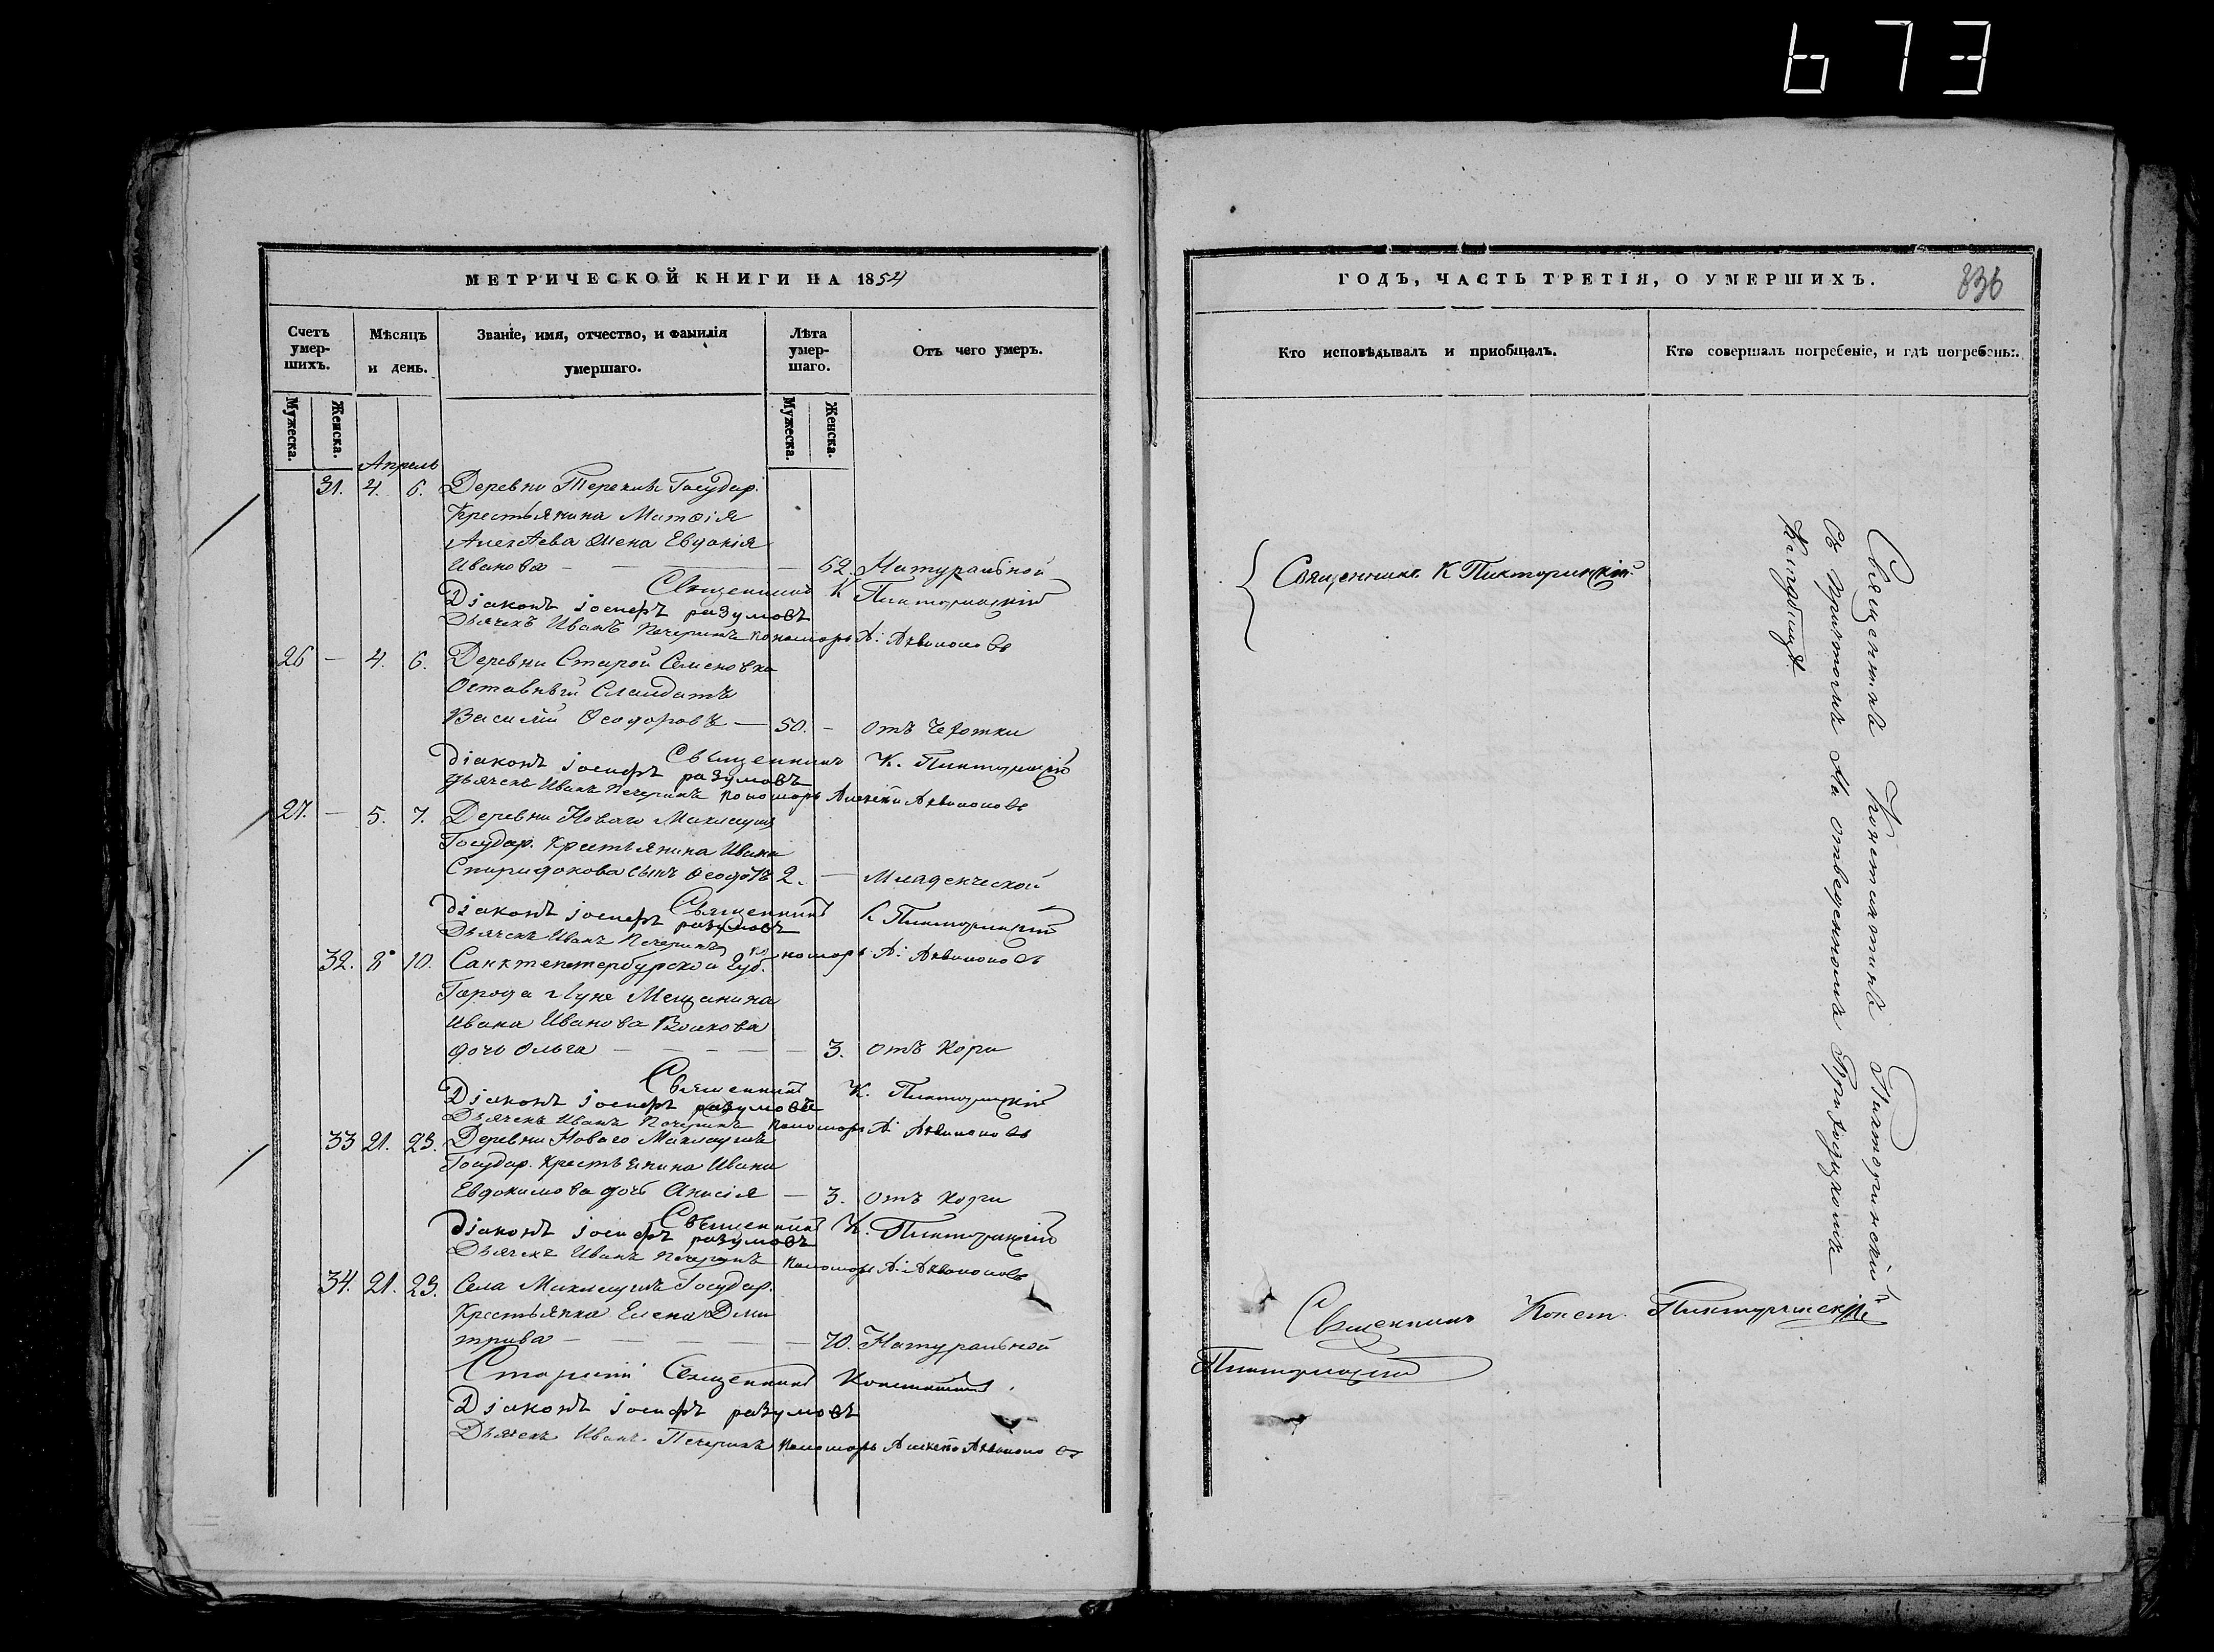 673
МЕТРИЧЕСКОЙ КНИГИ НА 1854
Счетъ умер-шихъ.
Мѣсяцъ и день.
Званіе, имя, отчество, и Фамилія умершаго.
Лѣта умер-шаго.
Отъ чего умеръ.
Мужеска. Женска.
Мужеска. Женска.
Апрель
31. 4. 6. Деревни Государ.
Крестьянина Матѳія
Алексѣева жена Евдокія
Иванова — 62. Натуральной
Священникъ К Пикторинскій
Діаконъ іосифъ разумовъ
Дьячекъ Иванъ Печеринъ пономарь А:
26 — 4. 6. Деревни Старой Семеновка
Оставный Салдатъ
Василій Ѳеодоровъ — 50. — отъ чехотки
Священникъ К. Пикторинскій
Діаконъ іосифъ разумовъ
Дьячекъ Иванъ Печеринъ пономарь Алексѣй
27. — 5. 7. Деревни Новаго
Государ. Крестьянина Ивана
Спиридонова сынъ Ѳеодотъ 2. — Младенческой
Священникъ К Пикторинскій
Діаконъ іосифъ разумовъ
Дьячекъ Иванъ Печеринъ пономарь А:
32. 8 10. Санктепетербурской Губ.
Города Луке Мещанина
Ивана Иванова
дочь Ольга — 3. отъ кори
Священникъ К. Пикторинскій
Діаконъ іосифъ разумовъ
Дьячекъ Иванъ Печеринъ пономарь А:
33 21. 23. Деревни Новаго
Государ. Крестьянина Ивана
Евдокимова дочь Анисія — 3. отъ кори
Священникъ К. Пикторинскій
Діаконъ іосифъ разумовъ
Дьячекъ Иванъ Печеринъ пономарь А:
34. 21. 23. Села Государ.
Крестьянка Елена Дми
трива — 70. Натуральной
Священникъ
Діаконъ іосифъ разумовъ
Дьячекъ Иванъ Печеринъ пономарь Алексѣй
ГОДЪ, ЧАСТЬ ТРЕТІЯ, О УМЕРШИХЪ.
836
Кто исповѣдывалъ и пріобщалъ.
Кто совершалъ погребеніе, и гдѣ погребены.
Священникъ К Пикторинскій
Священникъ Константинъ Пикторинскій
Съ причтомъ На отведенномъ Приходскомъ
Кладбищѣ.
Священникъ Конст. Пикторинскій
Пикторинскій